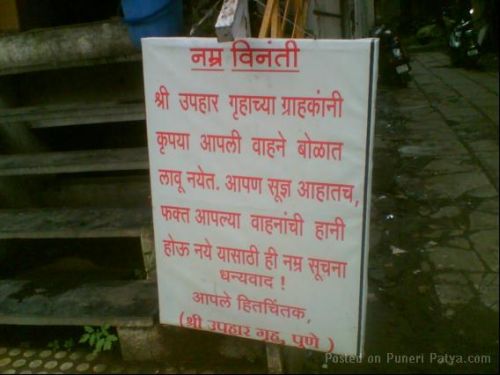 नम्र विनंती
श्री उपहार गृहाच्या ग्राहकांनी
कृपया आपली वाहने बोळात
लावू नयेत. आपण सूज्ञ आहातच,
फक्त आपल्या वाहनांची हानी
होऊ नये यासाठी ही नम्र सूचना
धन्यवाद !
आपले हितचिंतक,
(श्री उपहार गृह, पुणे )
Posted on Puneri Patya.com